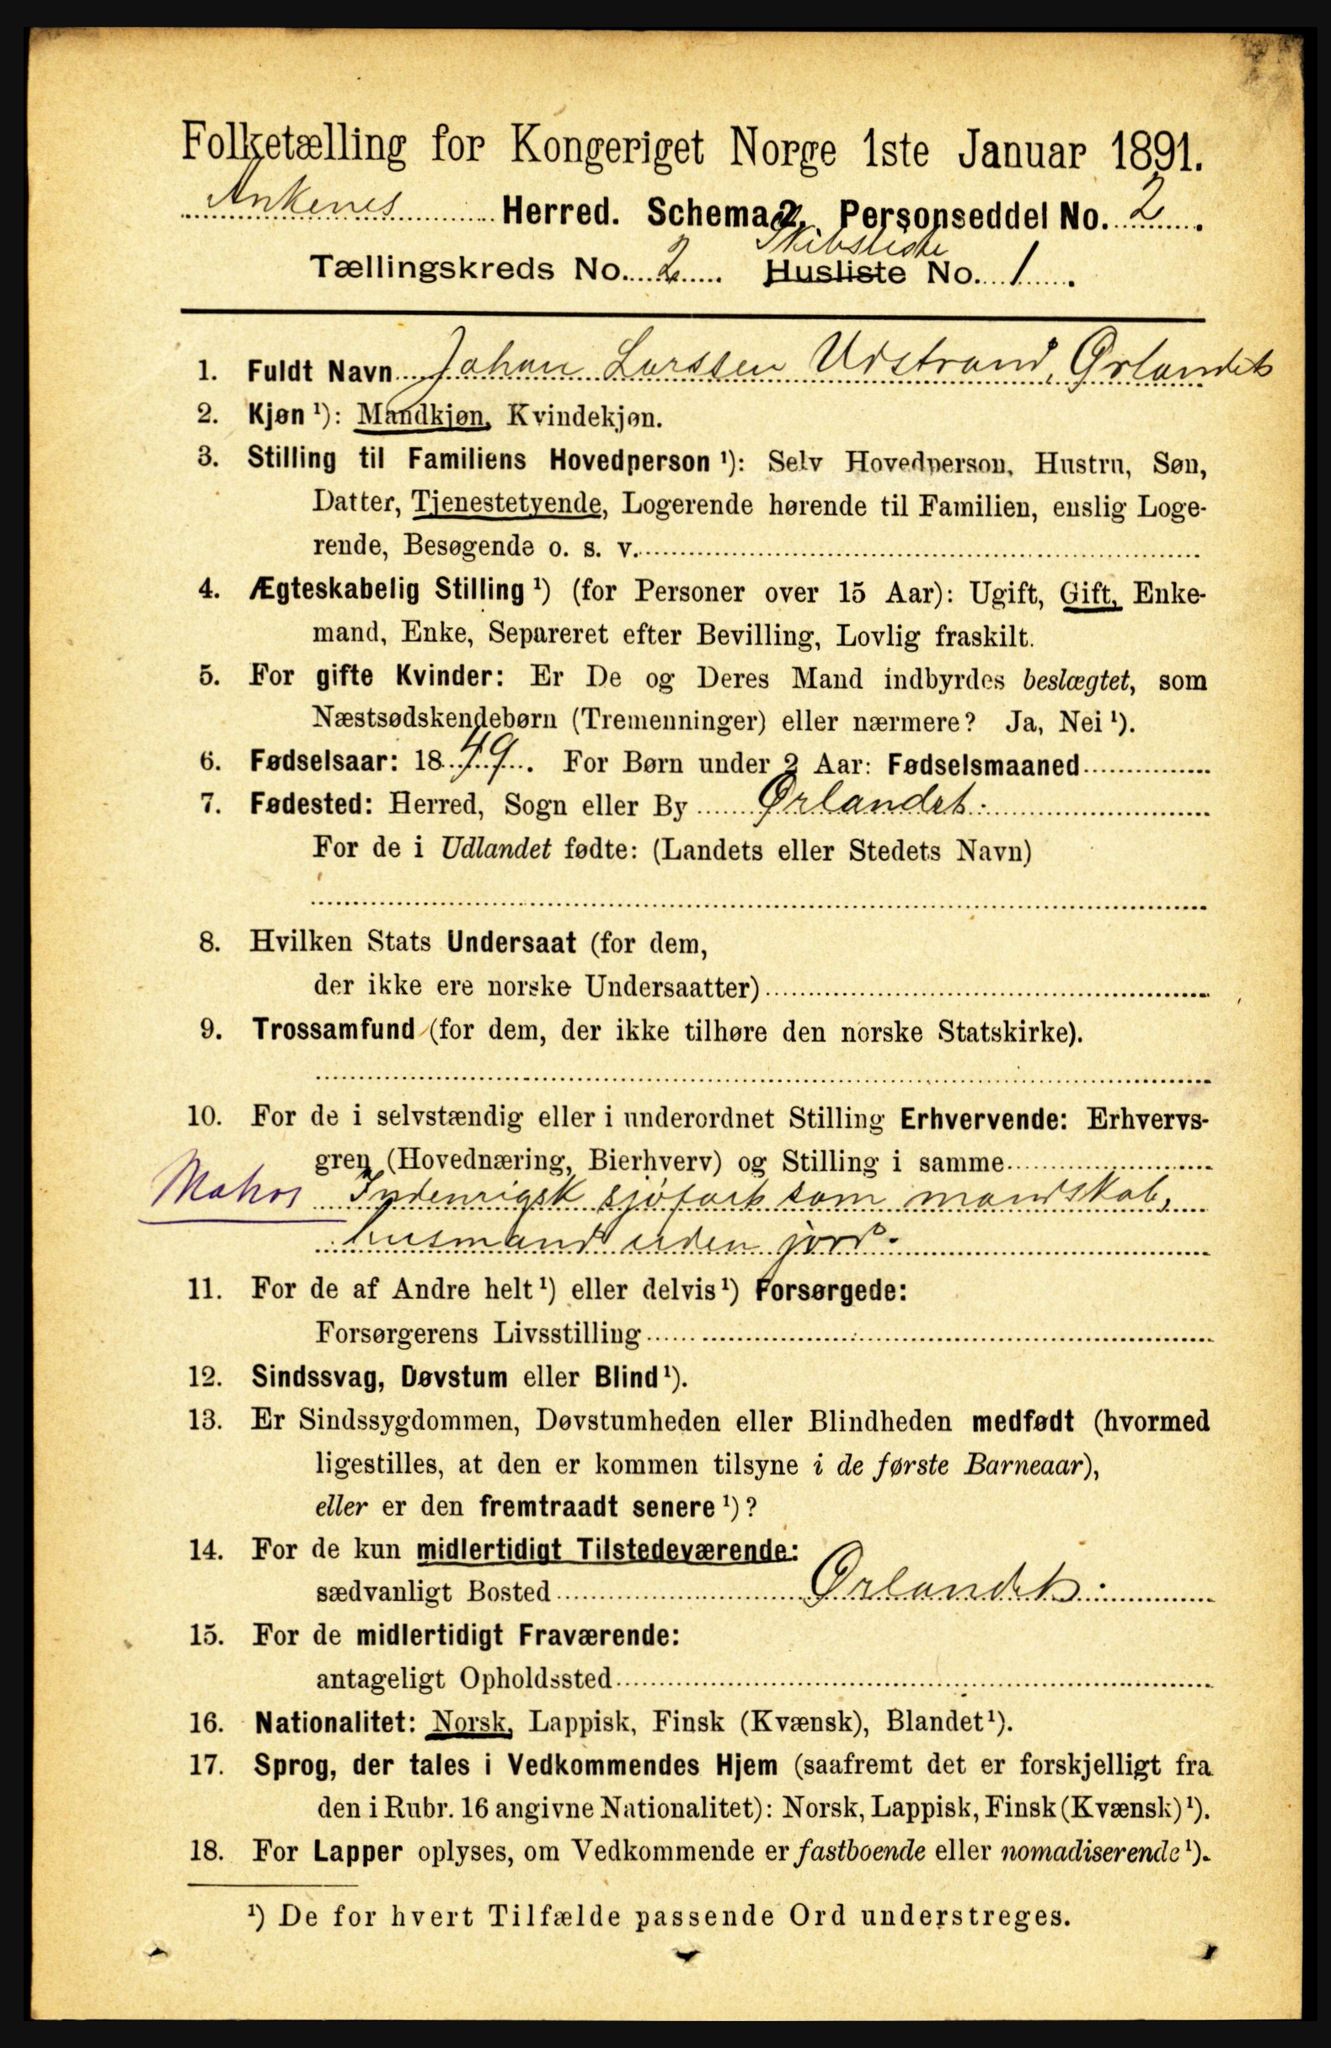 Folketælling for Kongeriget Norge 1ste Januar 1891.
Ankenes Herred. Schema 2. Personseddel No. 2.
Skibsliste
Tællingskreds No. 2. Husliste No. 1.
1. Fuldt Navn Johan Larssen Udstrand, Ørlandet
2. Kjøn ¹): Mandkjøn, Kvindekjøn.
3. Stilling til Familiens Hovedperson ¹): Selv Hovedperson, Hustru, Søn,
Datter, Tjenestetyende, Logerende hørende til Familien, enslig Loge-
rende, Besøgende o. s. v.
4. Ægteskabelig Stilling ¹) (for Personer over 15 Aar): Ugift, Gift, Enke-
mand, Enke, Separeret efter Bevilling, Lovlig fraskilt.
5. For gifte Kvinder: Er De og Deres Mand indbyrdes beslægtet, som
Næstsødskendebørn (Tremenninger) eller nærmere? Ja, Nei ¹).
6. Fødselsaar: 1849. For Børn under 2 Aar: Fødselsmaaned
7. Fødested: Herred, Sogn eller By Ørlandet.
For de i Udlandet fødte: (Landets eller Stedets Navn)
8. Hvilken Stats Undersaat (for dem,
der ikke ere norske Undersaatter)
9. Trossamfund (for dem, der ikke tilhøre den norske Statskirke).
10. For de i selvstændig eller i underordnet Stilling Erhvervende: Erhvervs-
gren (Hovednæring, Bierhverv) og Stilling i samme
Matros Indenrigsk sjöfart som mandskab,
husmand uden jord.
11. For de af Andre helt ¹) eller delvis ¹) Forsørgede:
Forsørgerens Livsstilling
12. Sindssvag, Døvstum eller Blind ¹).
13. Er Sindssygdommen, Døvstumheden eller Blindheden medfødt (hvormed
ligestilles, at den er kommen tilsyne i de første Barneaar),
eller er den fremtraadt senere ¹)?
14. For de kun midlertidigt Tilstedeværende:
sædvanligt Bosted Ørlandet.
15. For de midlertidigt Fraværende:
antageligt Opholdssted
16. Nationalitet: Norsk, Lappisk, Finsk (Kvænsk), Blandet ¹).
17. Sprog, der tales i Vedkommendes Hjem (saafremt det er forskjelligt fra
den i Rubr. 16 angivne Nationalitet): Norsk, Lappisk, Finsk (Kvænsk) ¹).
18. For Lapper oplyses, om Vedkommende er fastboende eller nomadiserende ¹).
¹) De for hvert Tilfælde passende Ord understreges.